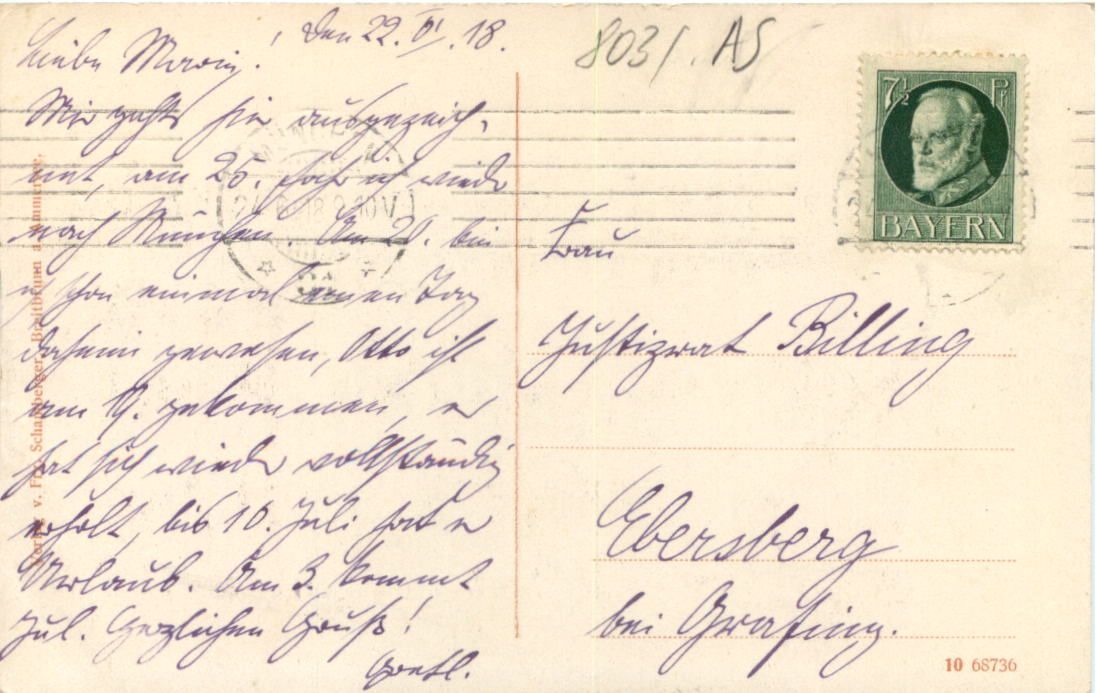 den 22. VI. 18.
Liebe
Mir geht's hier ausgezeich-
net, am 25. fahr ich wieder
nach München. Am 20. bin
ich schon einmal einen Tag
daheim gewesen, Otto ist
am 19. gekommen, er
hat sich wieder vollständig
erholt, bis 10. Juli hat er
Urlaub. Am 3. kommt
Jul. Herzlichen Gruß!
Gretl.
8031. AS
7½ Pf
BAYERN
Frau
Justizrat Billing
Ebersberg
bei Grafing.
Verlag v. Frz. Schamberger, Breitbrunn a. Ammersee.
10 68736